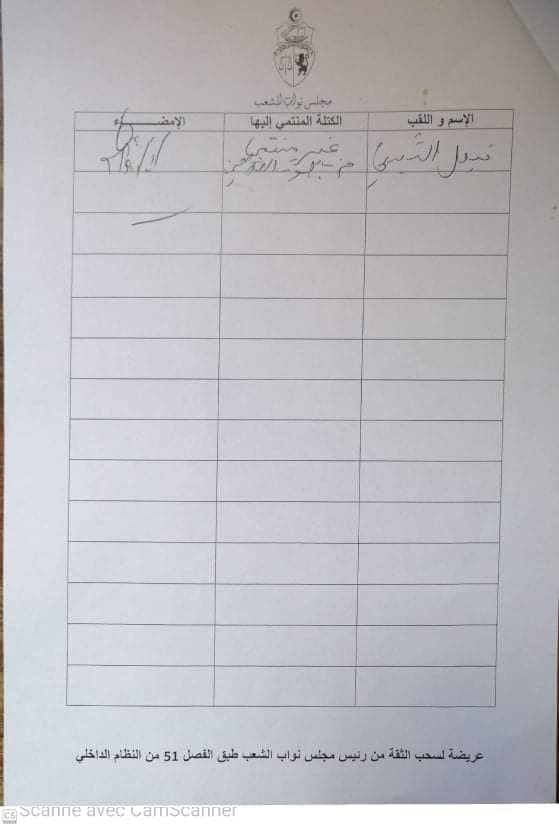 مجلس نواب الشعب
الإسم و اللقب
الكتلة المنتمي إليها
الإمضـــــــاء
فيصل التبيني
غير منتمي
حزب صوت الفلاحين
عريضة لسحب الثقة من رئيس مجلس نواب الشعب طبق الفصل 51 من النظام الداخلي
CS Scanné avec CamScanner